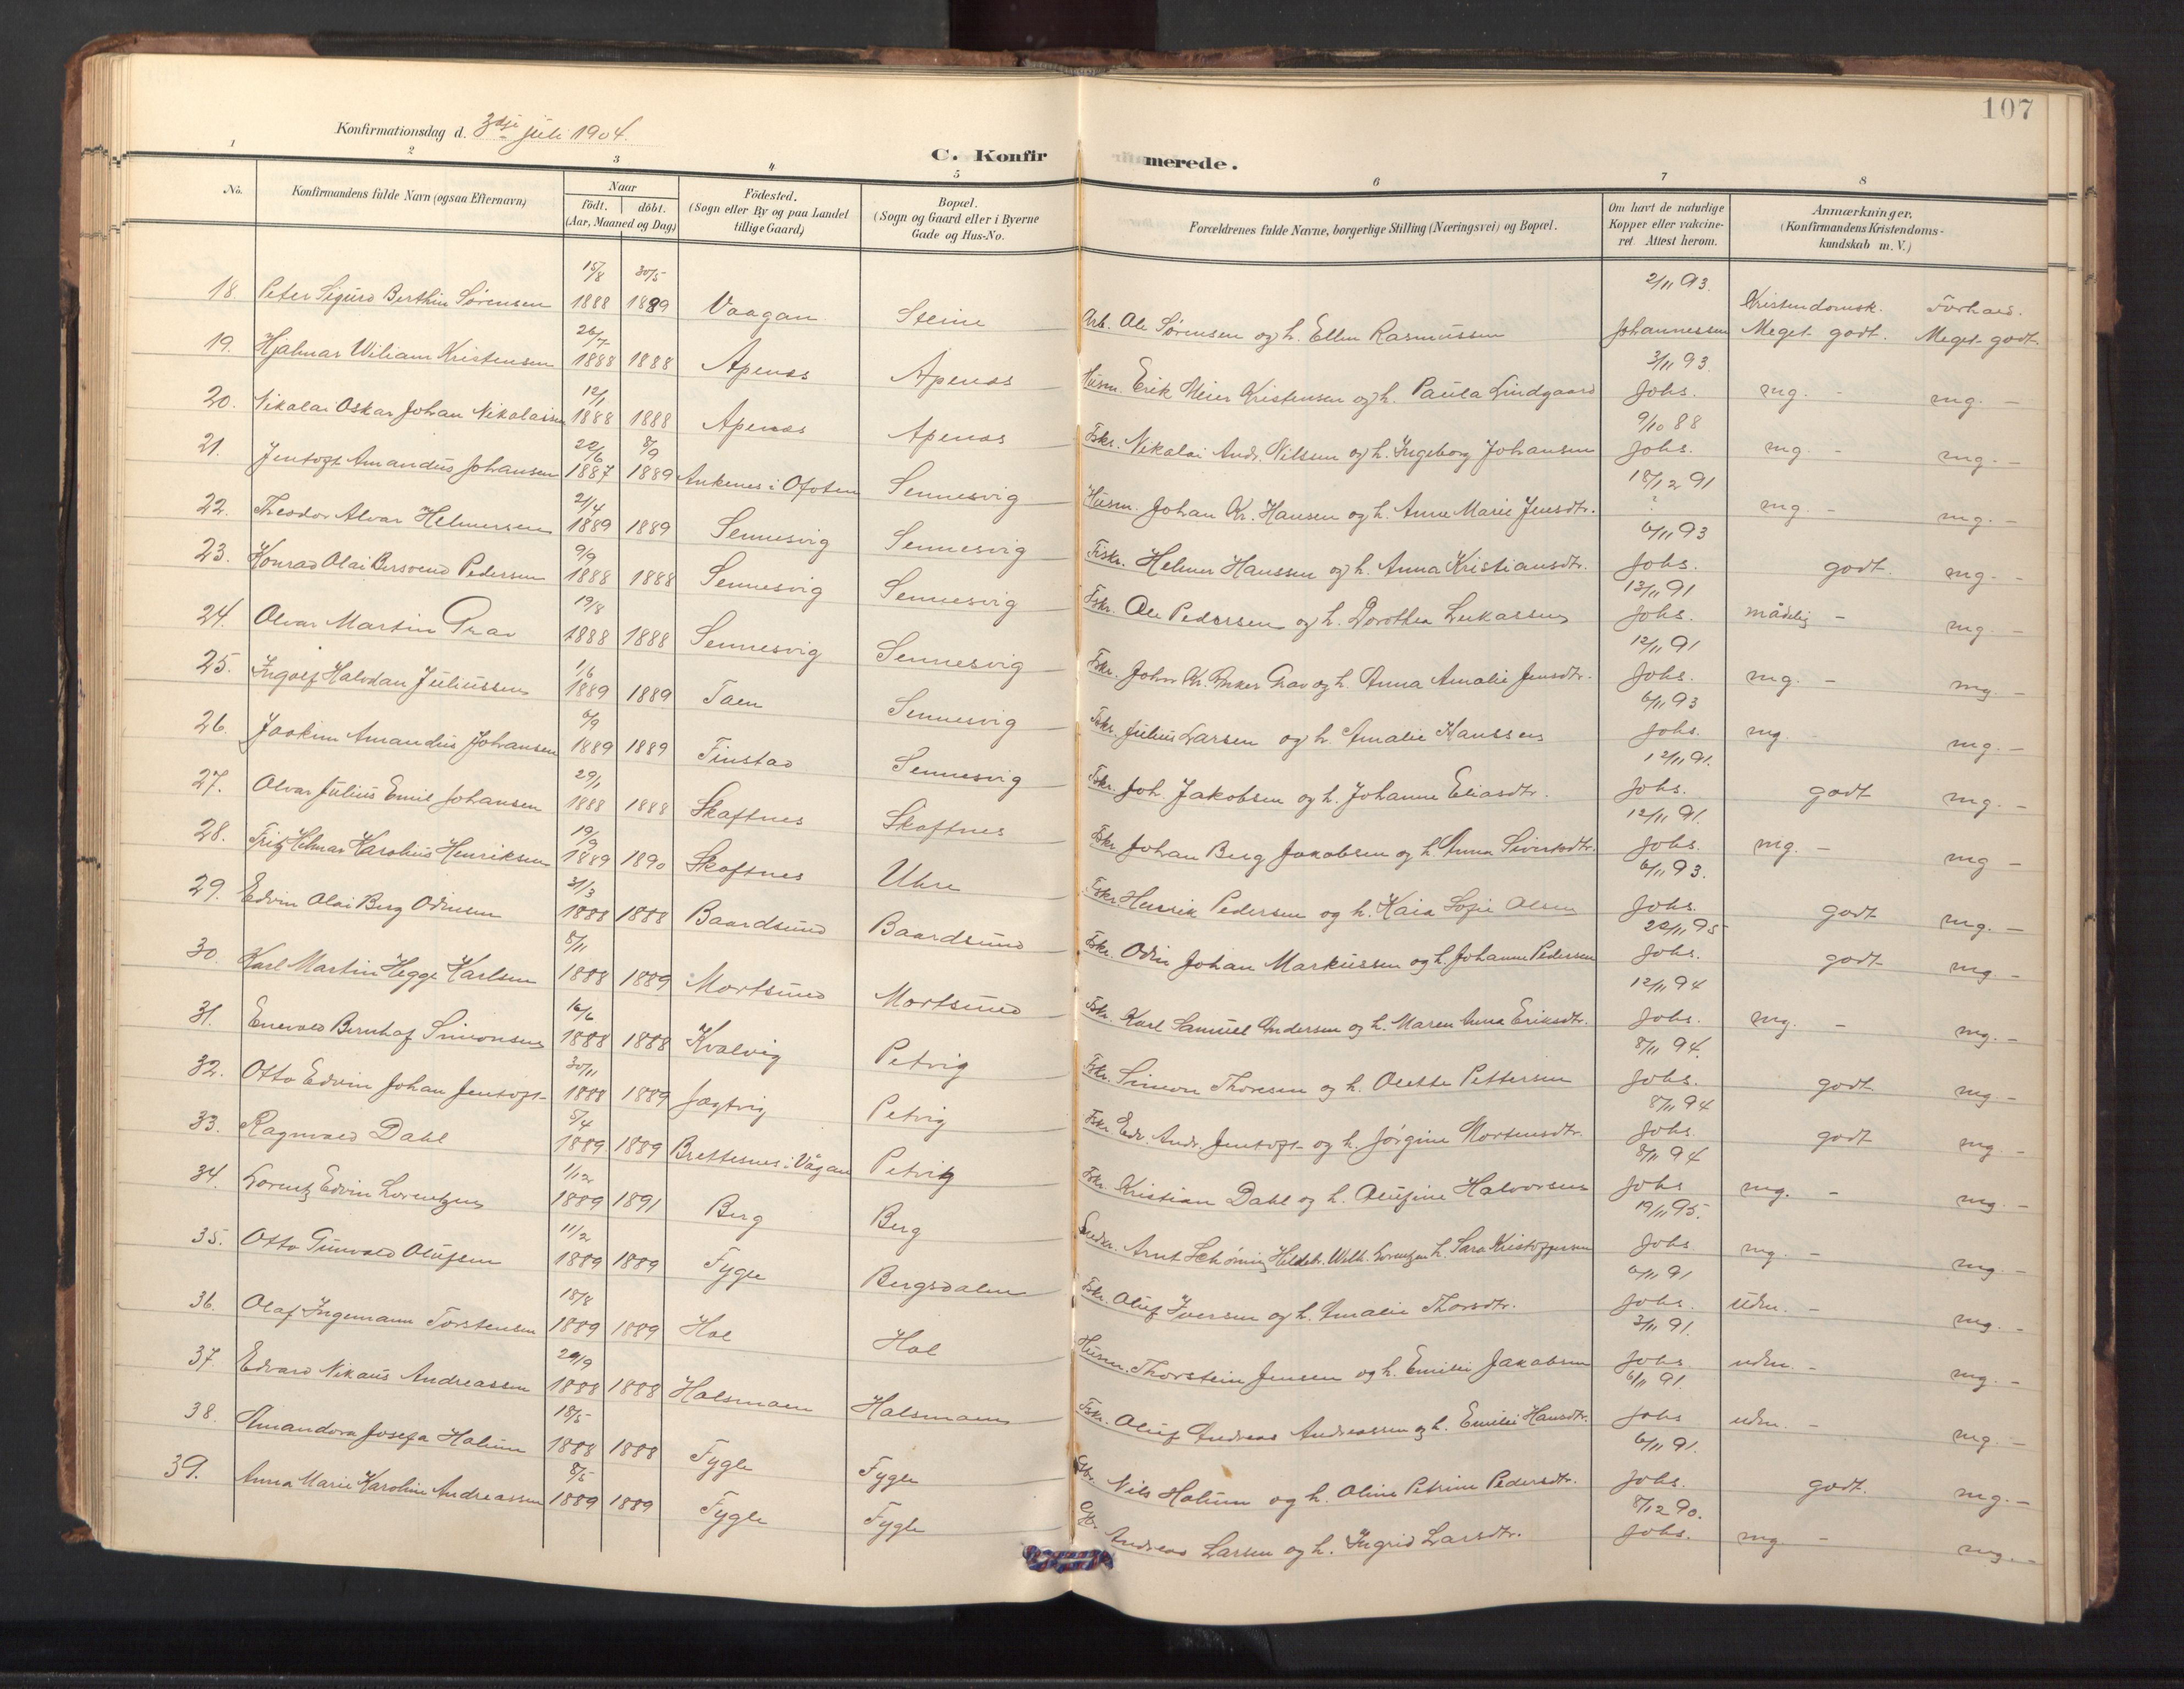 107
Konfirmationsdag d. 3dje juli 1904.
C. Konfirmerede.
1 2 3 4 5 6 7 8
No. Konfirmandens fulde Navn (ogsaa Efternavn) Naar födt. döbt. (Aar, Maaned og Dag) Födested. (Sogn eller By og paa Landet tillige Gaard) Bopæl. (Sogn og Gaard eller i Byerne Gade og Hus-No. Forældrenes fulde Navne, borgerlige Stilling (Næringsvei) og Bopæl. Om havt de naturlige Kopper eller vakcineret. Attest herom. Anmærkninger. (Konfirmandens Kristendomskundskab m. V.)
15/8 30/5 2/11 93. Kristendomsk. Forhold.
18. Peter Sigurd Berthin Sørensen 1888 1889 Vaagan Steine Arb. Ole Sørensen og h. Ellen Rasmussen Johannessen Meget godt. Meget godt
26/7 3/11 93.
19. Hjalmar Wiliam Kristensen 1888 1888 Apenæs Apenæs Husm. Erik Meier Kristensen og h. Paula Lindgaard Johs. mg. - mg. -
12/1 9/10 88
20. Nikolai Oskar Johan Nikolaisen 1888 1888 Apenæs Apenæs Fskr. Nikolai Andr. Nilsen og h. Ingeborg Johansen Johs. mg. - mg. -
22/6 8/9 18/12 91
21. Jentoft Amandus Johansen 1887 1889 Ankenes i Ofoten Sennesvig Husm. Johan Kr. Hansen og h. Anne Marie Jensdtr. ? mg. - mg. -
2/4 6/11 93
22. Theodor Alvar Helmersen 1889 1889 Sennesvig Sennesvig Fiskr. Helmer Hanssen og h. Anna Kristiansdtr. Johs. godt. mg. -
9/9 13/11 91
23. Konrad Olai Bersvend Pedersen 1888 1888 Sennesvig Sennesvig Fskr. Ole Pedersen og h. Dorothea Lukassen Johs. mådelig - mg. -
19/8 12/11 91
24. Olvar Martin Grav 1888 1888 Sennesvig Sennesvig Fskr. John Kr. Anker Grav og h. Anna Amalie Jensdtr. Johs. mg. - mg. -
1/6 6/11 93
25. Ingolf Halvdan Juliussen 1889 1889 Taen Sennesvig Fskr. Julius Larsen og h. Amalie Hanssen Johs. mg. mg. -
6/9 12/11 91.
26. Joakim Amandus Johansen 1889 1889 Finstad Sennesvig Fskr. Joh. Jakobsen og h. Johanne Eliasdtr. Johs. godt mg. -
29/1 12/11 91.
27. Olvar Julius Emil Johansen 1888 1888 Skaftnes Skaftnes Fskr Johan Berg Jakobsen og h. Anna Sivertsdtr. Johs. mg. - mg -
19/9 6/11 93.
28. Fritz Helmar Karolius Henriksen 1889 1890 Skaftnes Uhre Fskr. Henrik Pedersen og h. Kaia Sofie Olsen Johs. godt mg. -
31/3 22/11 95
29. Edvin Olai Berg Odinsen 1888 1888 Baardsund Baardsund Fskr. Odin Johan Markussen og h. Johanne Pedersen Johs. godt mg. -
8/11 12/11 94
30. Karl Martin Hegge Karlsen 1888 1889 Mortsund Mortsund Fskr. Karl Samuel Andersen og h. Maren Anna Eriksdtr. Johs. mg. - mg. -
16/6 8/11 94.
31. Enevold Bernhof Simonsen 1888 1888 Kvalvig Petvig Fskr. Simon Thoresen og h. Olette Pettersen Johs. godt mg -
30/11 8/11 94
32. Otto Edvin Johan Jentoft 1888 1889 Jagtvig Petvig Fskr Edv. Andr. Jentoft og h. Jørgine Mortensdtr. Johs. godt mg -
5/4 8/11 94
33. Ragnvald Dahl 1889 1889 Brettesnes i Vågan Petvig Fskr. Kristian Dahl og h. Olufine Halvorsen Johs mg. - mg. -
1/12 19/11 95.
34. Lorentz Edvin Lorentzen 1889 1891 Berg Berg Arnt Schøning Hildebr. Wilh. Lorentzen h. Sara Kristoffersen Johs mg. - mg. -
11/2 6/11 91
35. Otto Gunvald Olufsen 1889 1889 Fygle Bergsdalen Fskr. Oluf Iversen og h. Amalie Thorsdtr. Johs. udm. - mg. -
18/8 3/11 91.
36. Olaf Ingemann Torstensen 1889 1889 Hol Hol Husm. Thorstein Jensen og h. Emilie Jakobsen Johs udm. - mg. -
29/9 6/11 91.
37. Edvard Nikaus Andreassen 1888 1888 Holsmoen Holsmoen Fskr. Oluf Andreas Andreassen og h. Emilie Hansdtr. Johs udm. - mg. -
18/5 6/11 91.
38. Amandora Josefa Holum 1888 1888 Fygle Fygle Gbr. Nils Holum og h. Oline Petrine Pedersdtr. Johs. godt. mg. -
8/5 8/12 90.
39. Anna Marie Karoline Andreassen 1889 1889 Fygle Fygle Gbr. Andreas Larsen og h. Ingrid Larsdtr. Johs. mg - mg. -